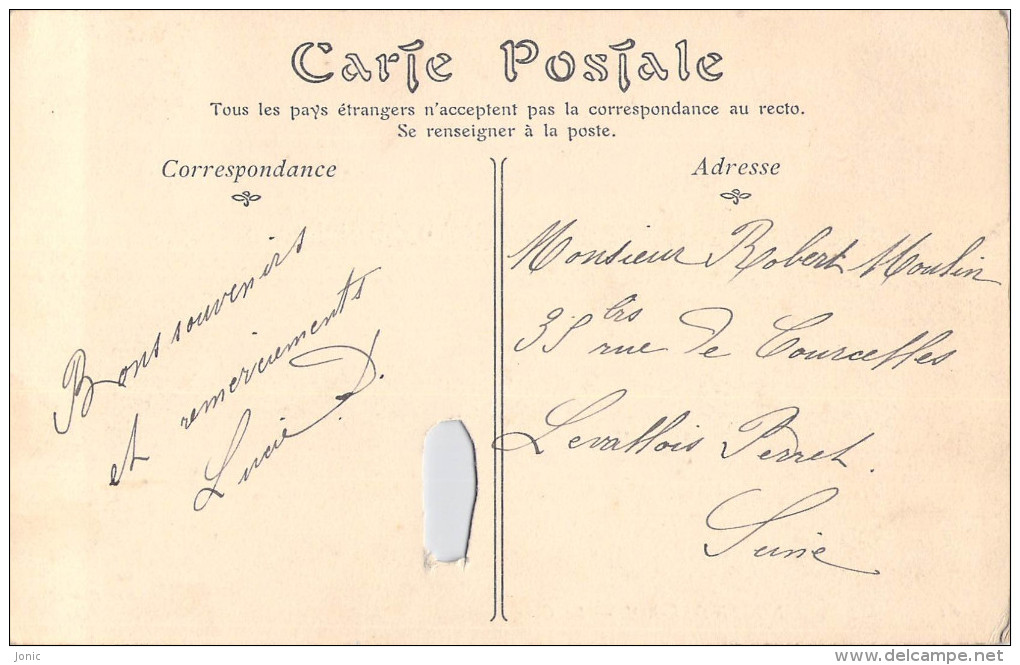 Carte Postale
Tous les pays étrangers n'acceptent pas la correspondance au recto.
Se renseigner à la poste.
Correspondance
Bons souvenirs
et remerciements
Lucie D.
Adresse
Monsieur Robert Moulin
35 bis rue de Courcelles
Levallois Perret.
Seine
jonic
www.delcampe.net